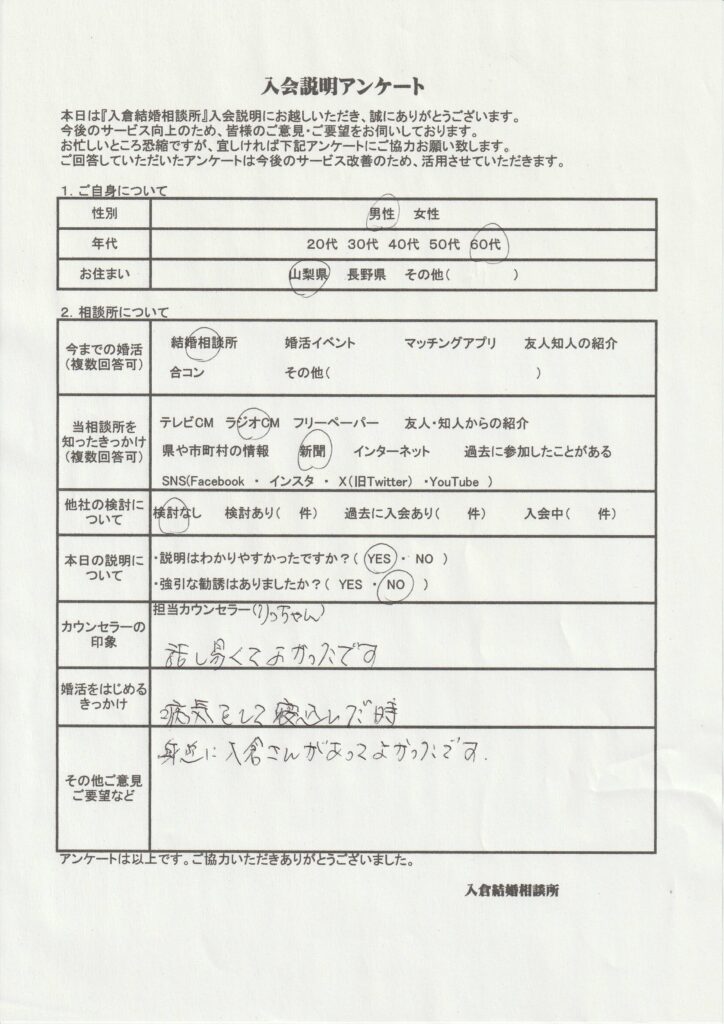 入会説明アンケート
本日は『入倉結婚相談所』入会説明にお越しいただき、誠にありがとうございます。
今後のサービス向上のため、皆様のご意見・ご要望をお伺いしております。
お忙しいところ恐縮ですが、宜しければ下記アンケートにご協力お願い致します。
ご回答していただいたアンケートは今後のサービス改善のため、活用させていただきます。
1. ご自身について
性別 男性 女性
年代 20代 30代 40代 50代 60代
お住まい 山梨県 長野県 その他( )
2. 相談所について
今までの婚活
(複数回答可)
結婚相談所 婚活イベント マッチングアプリ 友人知人の紹介
合コン その他( )
当相談所を
知ったきっかけ
(複数回答可)
テレビCM ラジオCM フリーペーパー 友人・知人からの紹介
県や市町村の情報 新聞 インターネット 過去に参加したことがある
SNS(Facebook ・ インスタ ・ X(旧Twitter) ・YouTube )
他社の検討に
ついて
検討なし 検討あり( 件) 過去に入会あり( 件) 入会中( 件)
本日の説明に
ついて
・説明はわかりやすかったですか?( YES ・ NO )
・強引な勧誘はありましたか?( YES ・ NO )
カウンセラーの
印象
担当カウンセラー(りっちゃん)
話し易くてよかったです
婚活をはじめる
きっかけ
病気をして寝込んだ時
その他ご意見
ご要望など
身近に入倉さんがあってよかったです.
アンケートは以上です。ご協力いただきありがとうございました。
入倉結婚相談所